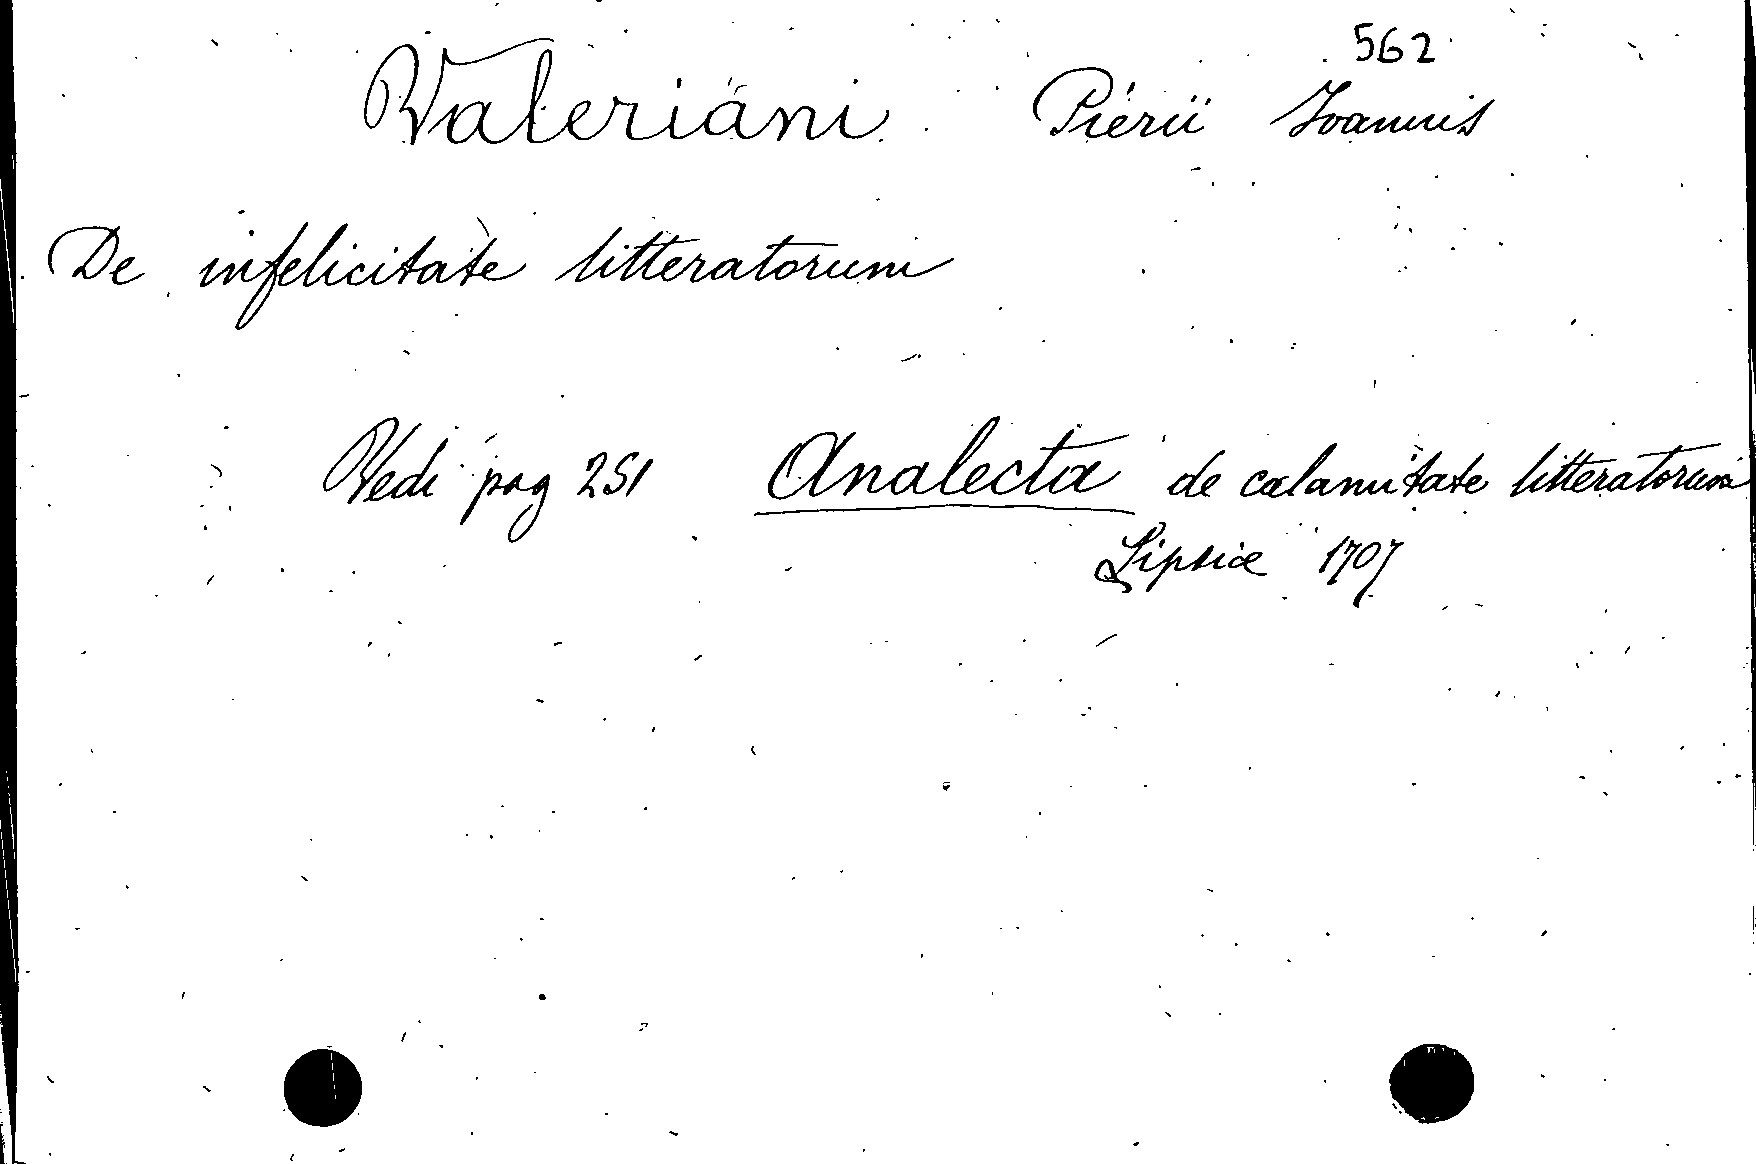 562
Valeriani Pierii Ioannis
De infelicitate litteratorum
Vedi pag 251 Analecta de calamitate litteratorum
Lipsiae 1707